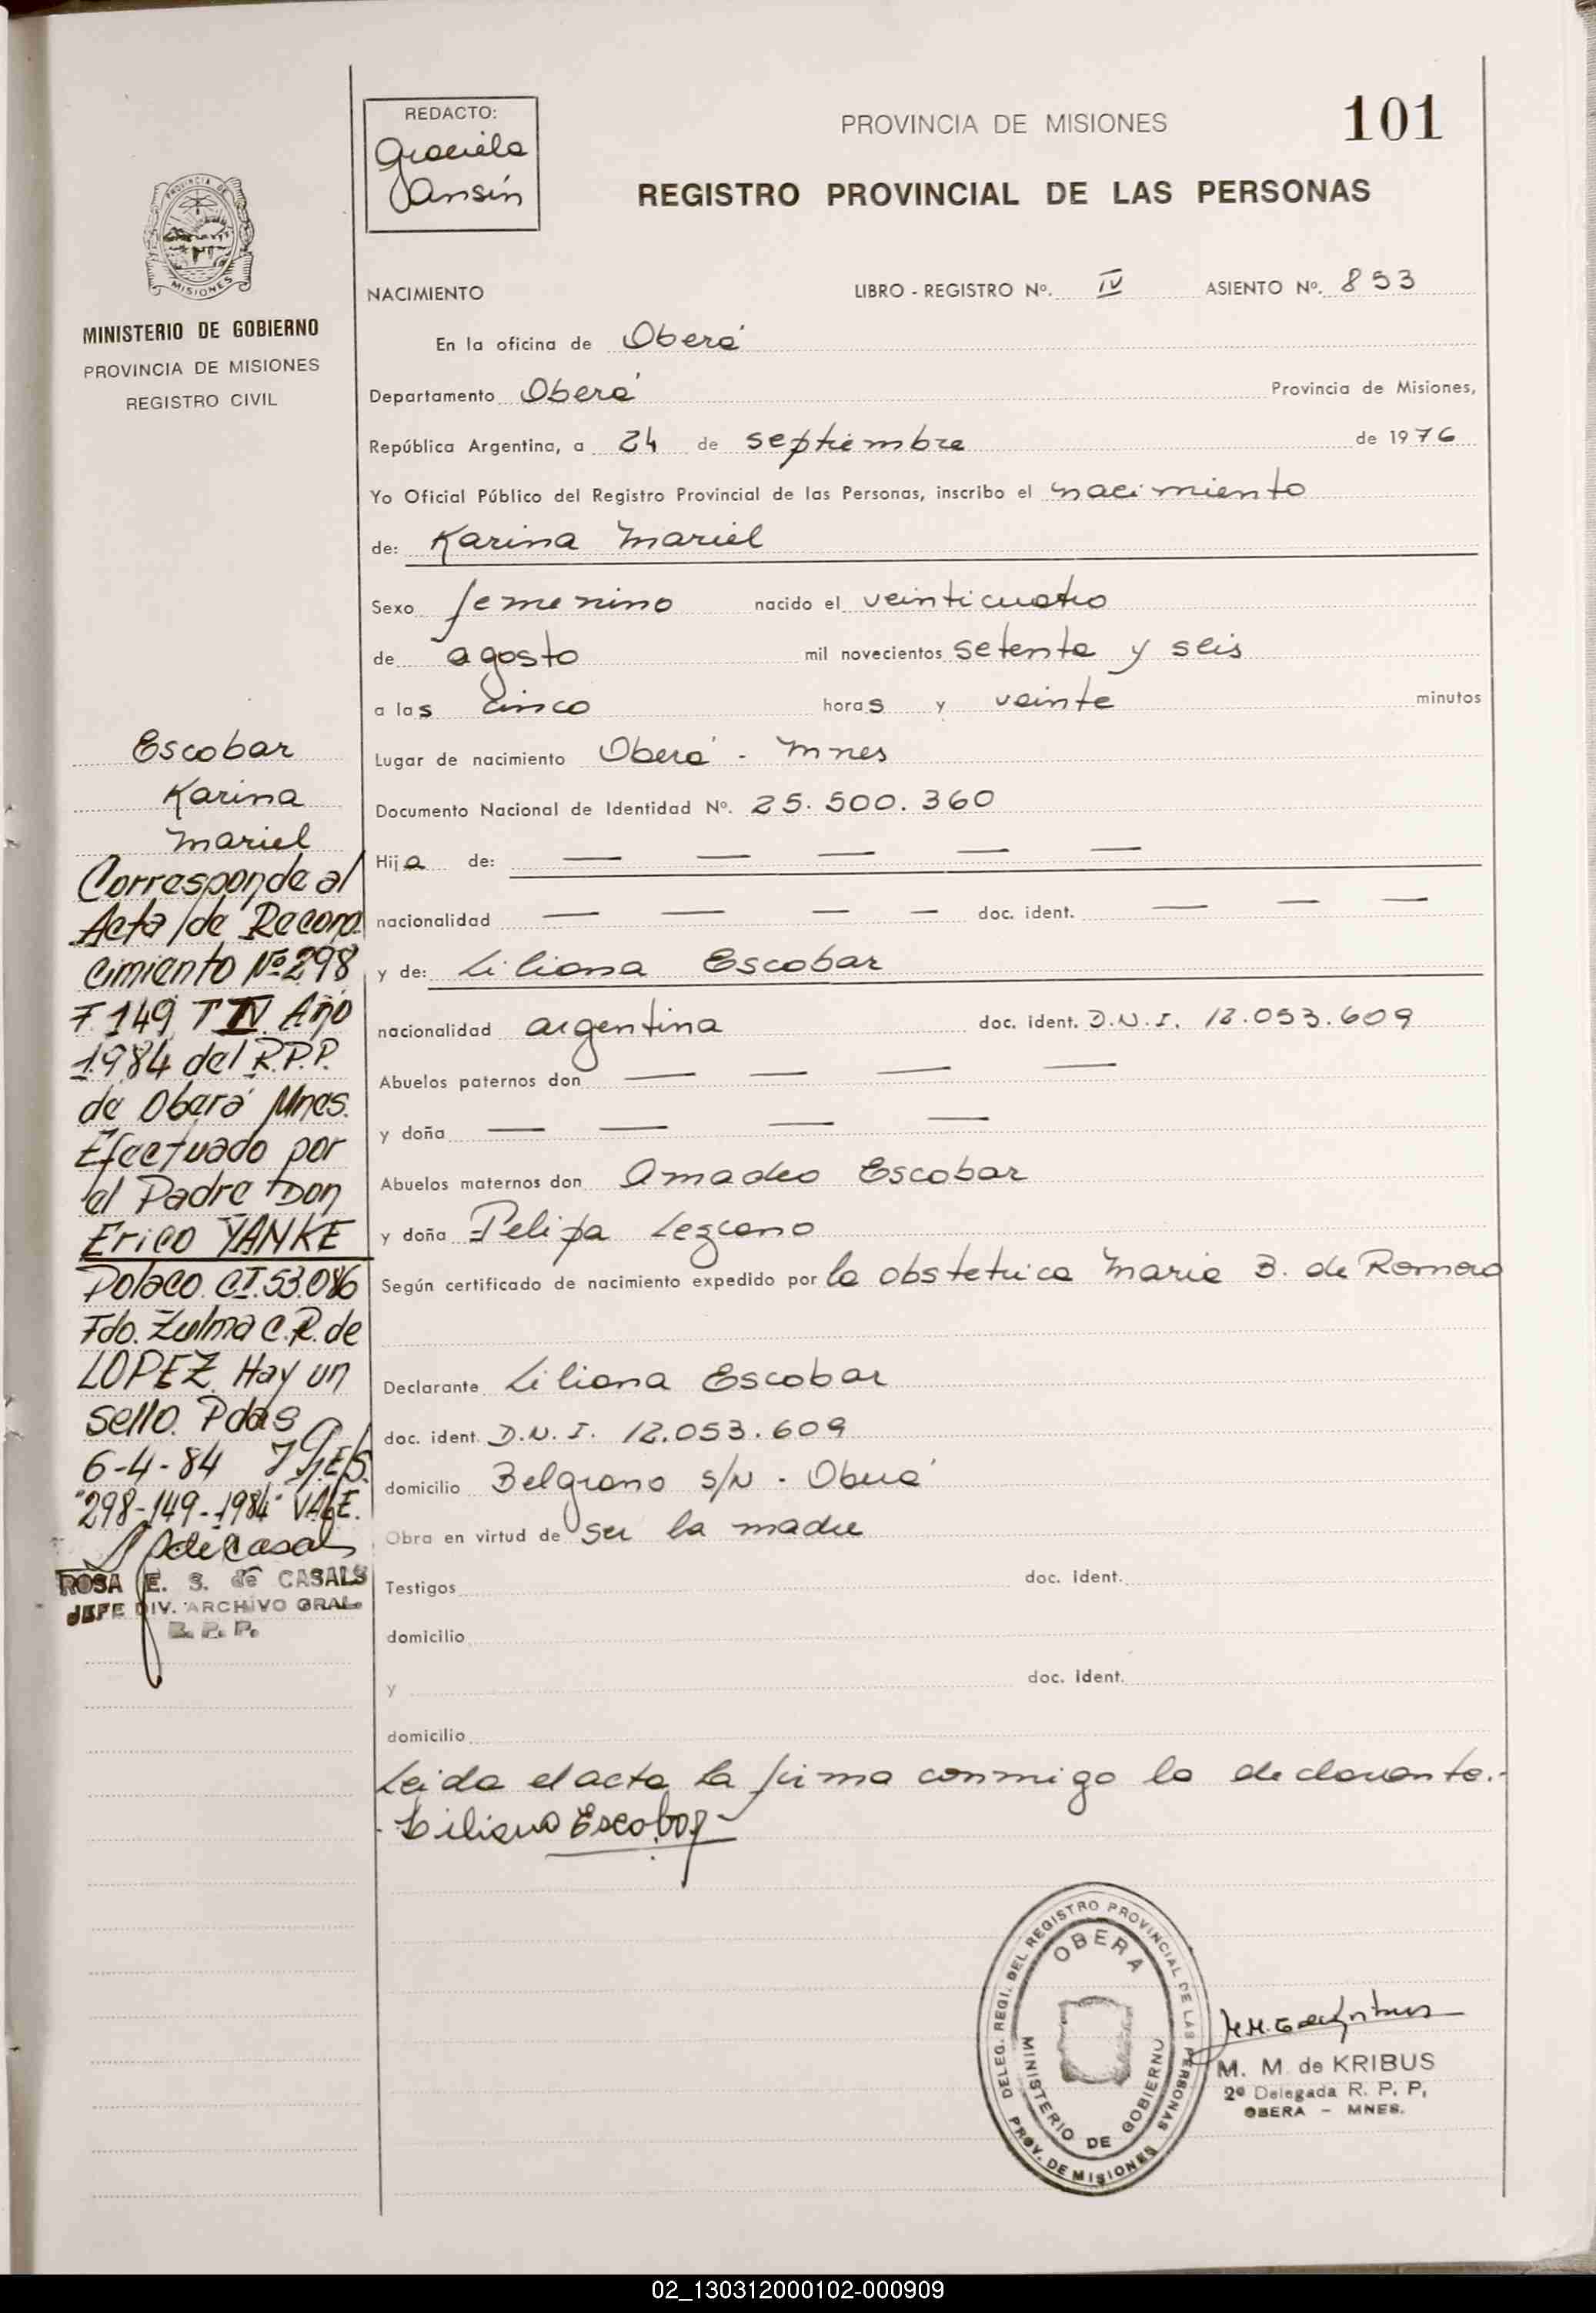 101
REDACTO:
Graciela
Ansín
PROVINCIA DE MISIONES
REGISTRO PROVINCIAL DE LAS PERSONAS
PROVINCIA DE
MISIONES
MINISTERIO DE GOBIERNO
PROVINCIA DE MISIONES
REGISTRO CIVIL
NACIMIENTO LIBRO - REGISTRO Nº. IV ASIENTO Nº. 853
En la oficina de Oberá
Departamento Oberá Provincia de Misiones,
República Argentina, a 24 de septiembre de 1976
Yo Oficial Público del Registro Provincial de las Personas, inscribo el nacimiento
de: Karina Mariel
Sexo femenino nacido el veinticuatro
de agosto mil novecientos setenta y seis
a las cinco horas y veinte minutos
Lugar de nacimiento Oberá - Mnes
Documento Nacional de Identidad Nº. 25.500.360
Hija de: — — — — —
nacionalidad — — — — doc. ident. — — —
y de: Liliana Escobar
nacionalidad argentina doc. ident. D.N.I. 12.053.609
Abuelos paternos don — — — —
y doña — — — —
Abuelos maternos don Amadeo Escobar
y doña Felipa Lezcano
Según certificado de nacimiento expedido por la obstetrica Maria B. de Romero
Declarante Liliana Escobar
doc. ident. D.N.I. 12.053.609
domicilio Belgrano s/N - Oberá
Obra en virtud de ser la madre
Testigos doc. ident.
domicilio
y doc. ident.
domicilio
Leida el acta la firma conmigo la declarante.-
Liliana Escobar
Escobar
Karina
Mariel
Corresponde al
Acta de Recono
cimiento Nº 298
F. 149 T IV Año
1984 del R.P.P.
de Oberá Mnes.
Efectuado por
el Padre Don
Erico YANKE
Polaco. CI. 53.086
Fdo. Zulma C.R. de
LOPEZ. Hay un
sello. Pdas
6-4-84
"298-149-1984" VALE.
ROSA E. S. de CASALS
JEFE DIV. ARCHIVO GRAL.
R. P. P.
DELEG. REGI. DEL REGISTRO PROVINCIAL DE LAS PERSONAS
PROV. DE MISIONES
OBERA
MINISTERIO DE GOBIERNO
M. M. de KRIBUS
2ª Delegada R. P. P.
OBERA - MNES.
02_130312000102-000909